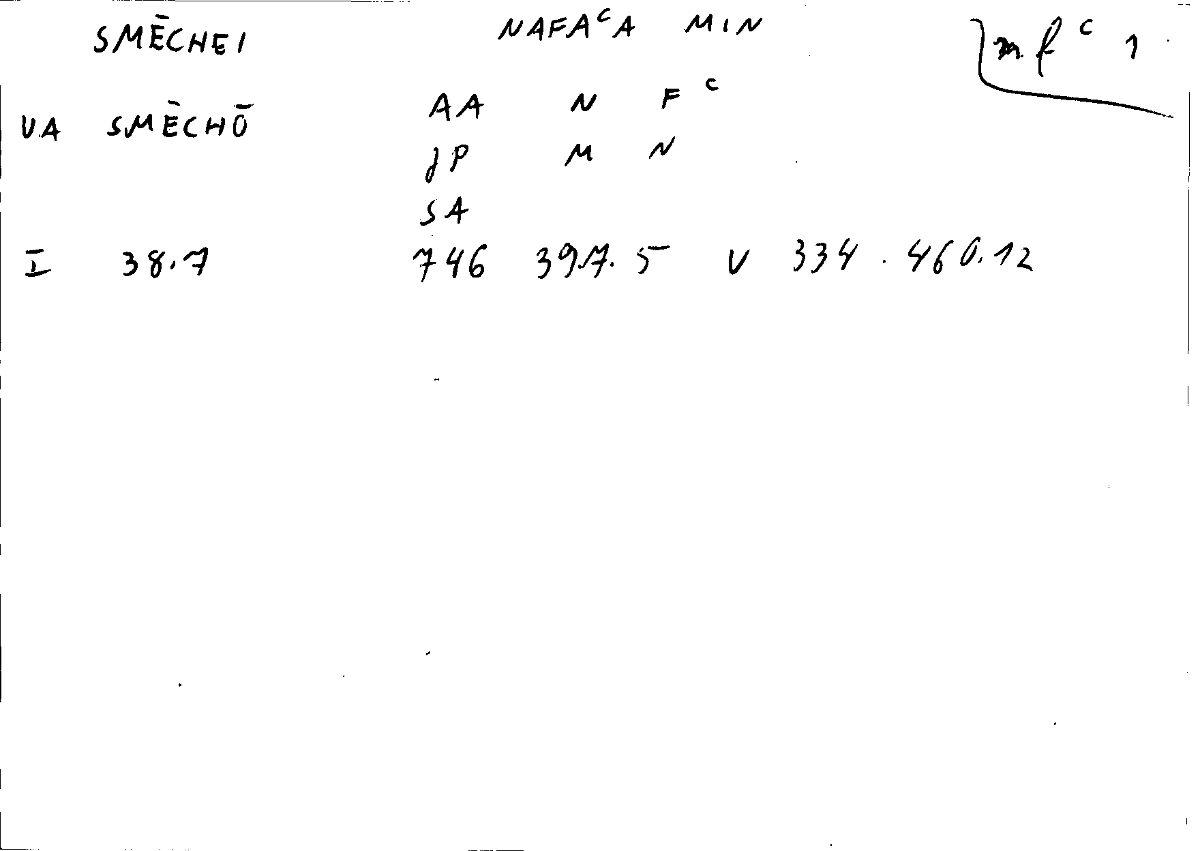 SMĒCHEI NAFAᶜA MIN nfᶜ 1
VA SMĒCHŌ AA N F ᶜ
JP M N
SA
I 38.7 746 39.7.5 V 334.460.12